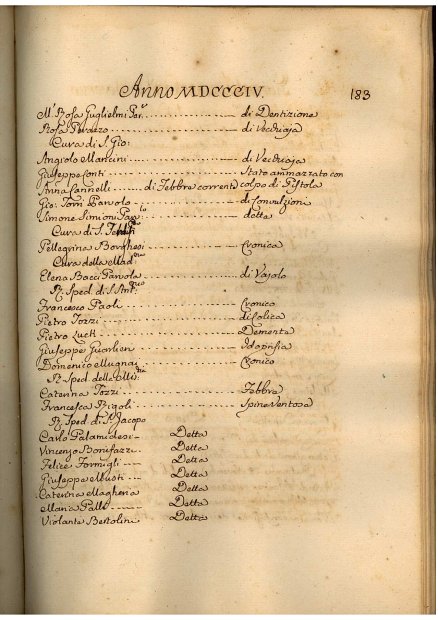 Anno MDCCCIV. 183
M.ª Rosa Guglielmi Par.ª di Dentizione
Rosa Perazzo di Vecchiaja
Cura di S. Gio:
Angiolo Mancini di Vecchiaja
Giuseppe Conti Stato ammazzato con
Anna Cannelli di Febbre corrente colpo di Pistola
Gio: Tom: Parvolo di Convulzioni
Simone Simioni Par.lo detta
Cura di S.
Pellegrina Borghesi Cronica
Cura della Mad.
Elena Bacci Parvola di Vajolo
R. Sped. di S. Ant.
Francesco Paoli Cronico
Pietro Tozzi di Colica
Pietro Demente
Giuseppe Idopisia
Domenico Mugnai Cronico
R. Sped. delle
Caterina Tozzi Febbre
Francesca Bigoli Spina Ventosa
R. Sped. di S. Jacopo
Carlo Palamidesi Detta
Vincenzo Bonifazzi Detta
Felice Formigli Detta
Giuseppe Detta
Caterina Magheria Detta
Maria Galli Detta
Violante Bertolini Detta